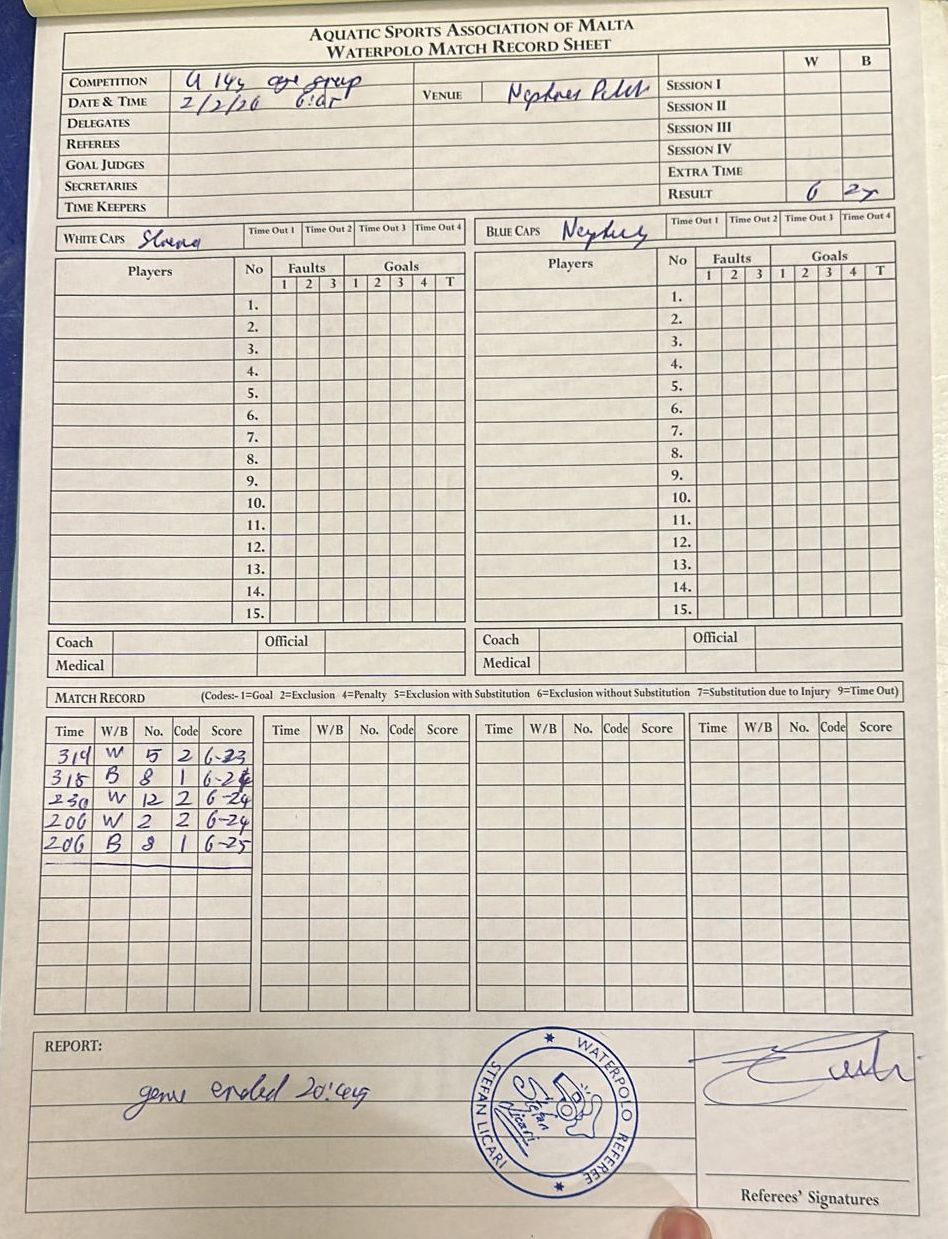 AQUATIC SPORTS ASSOCIATION OF MALTA
WATERPOLO MATCH RECORD SHEET
COMPETITION U 14s age group
DATE & TIME 2/2/26
VENUE
DELEGATES
REFEREES
GOAL JUDGES
SECRETARIES
TIME KEEPERS
W B
SESSION I
SESSION II
SESSION III
SESSION IV
EXTRA TIME
RESULT 6 25
WHITE CAPS Time Out 1 Time Out 2 Time Out 3 Time Out 4
BLUE CAPS Time Out 1 Time Out 2 Time Out 3 Time Out 4
Players No Faults Goals
1 2 3 1 2 3 4 T
1.
2.
3.
4.
5.
6.
7.
8.
9.
10.
11.
12.
13.
14.
15.
Coach Official
Medical
Players No Faults Goals
1 2 3 1 2 3 4 T
1.
2.
3.
4.
5.
6.
7.
8.
9.
10.
11.
12.
13.
14.
15.
Coach Official
Medical
MATCH RECORD (Codes:- 1=Goal 2=Exclusion 4=Penalty 5=Exclusion with Substitution 6=Exclusion without Substitution 7=Substitution due to Injury 9=Time Out)
Time W/B No. Code Score Time W/B No. Code Score Time W/B No. Code Score Time W/B No. Code Score
319 W 5 2 6-23
318 B 8 1 6-24
230 W 12 2 6-24
206 W 2 2 6-24
206 B 8 1 6-25
REPORT:
game ended
WATERPOLO REFEREE
STEFAN LICARI
Stefan
Licari
Referees' Signatures